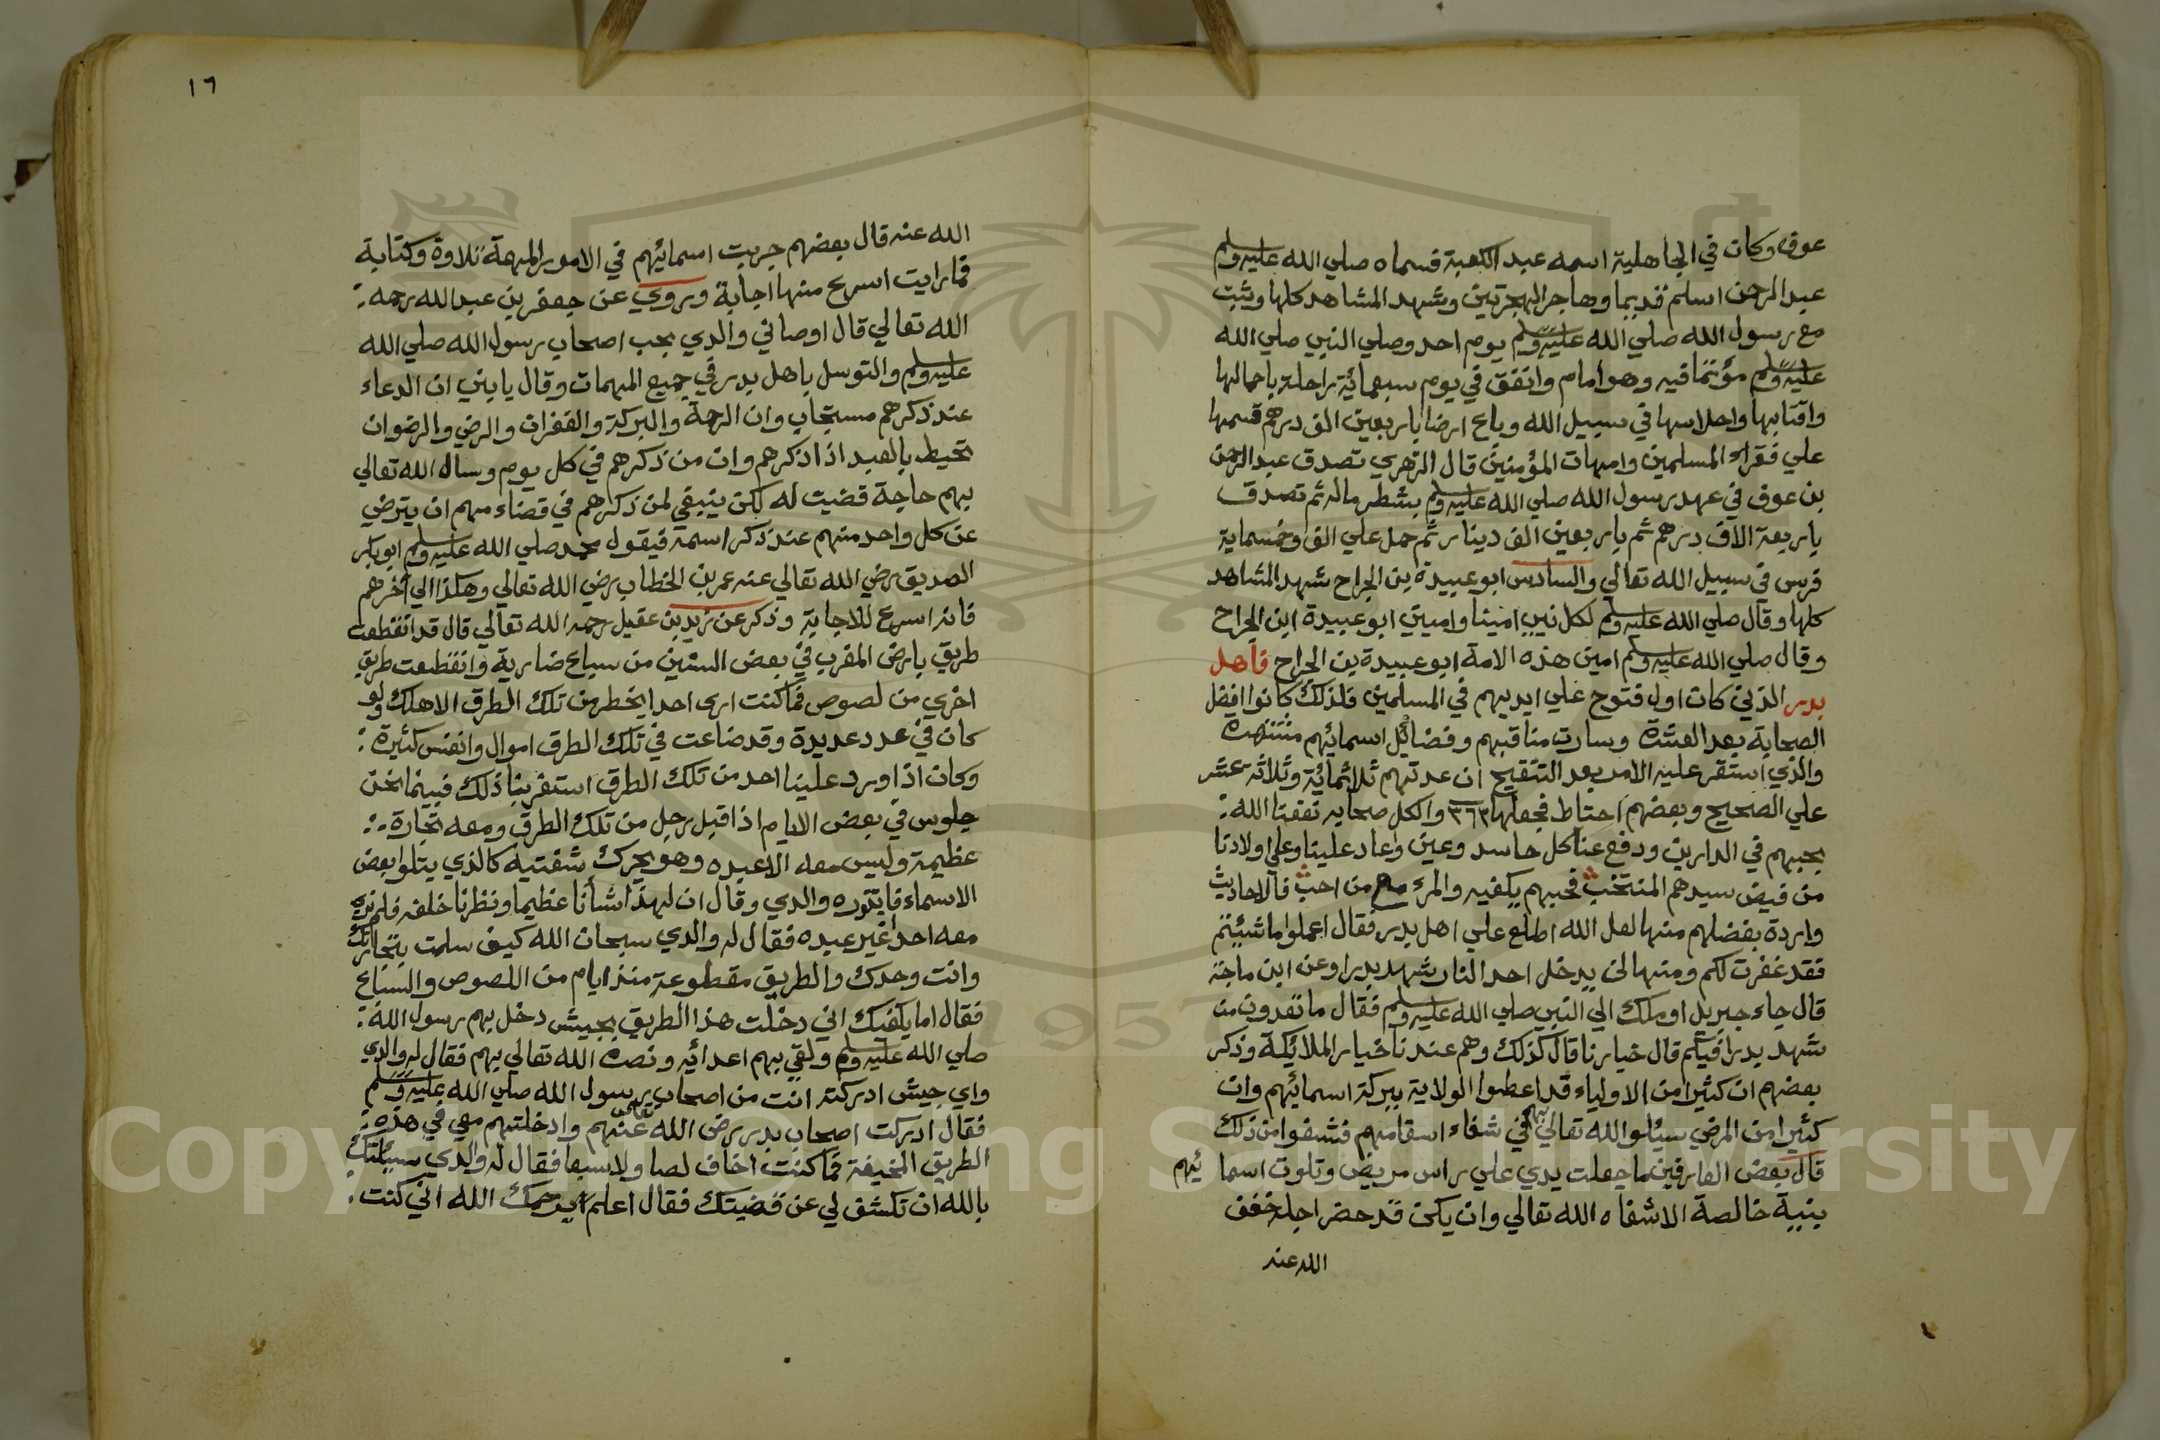 عوف وكان في الجاهلية اسمه عبد الكعبة فسماه صلي الله عليه وسلم
عبد الرحمن اسلم قديما وهاجر الهجرتين وشهد المشاهد كلها وثبت
مع رسول الله صلي الله عليه وسلم يوم احد وصلي النبي صلي الله
عليه وسلم مؤتما فيه وهو امام وانفق في يوم سبعمائة راحلة باحمالها
واقتابها واحلاسها في سبيل الله وباع ارضا باربعين الف درهم قسمها
علي فقراء المسلمين وامهات المؤمنين قال الزهري تصدق عبد الرحمن
بن عوف في عهد رسول الله صلي الله عليه وسلم بشطر ماله ثم تصدق
باربعة الاف درهم ثم باربعين الف دينار ثم حمل علي الف وخمسماية
فرس في سبيل الله تعالي والسادس ابو عبيدة بن الجراح شهد المشاهد
كلها وقال صلي الله عليه وسلم لكل نبي امينا واميني ابو عبيدة ابن الجراح
وقال صلي الله عليه وسلم امين هذه الامة ابو عبيدة بن الجراح فاهل
بدر الذين كان اول فتوح علي ايديهم في المسلمين فلذلك كانوا افضل
الصحابة بعد العشرة وسارت مناقبهم وفضائل اسمائهم مشتهرة
والذي استقر عليه الامر بعد التنقيح ان عدتهم ثلاثمائة وثلاثة عشر
علي الصحيح وبعضهم احتاط فجعلها ٣٦٣ والكل صحابه نفعنا الله
بحبهم في الدارين ودفع عنا كل حاسد وعين وعاد علينا وعلي اولادنا
من فيض سيدهم المنتخب فحبهم يكفيه والمرء مع من احب فالاحاديث
واردة بفضلهم منها لعل الله اطلع علي اهل بدر فقال اعملوا ما شئتم
فقد غفرت لكم ومنها لن يدخل احد النار شهد بدرا وعن ابن ماجة
قال جاء جبريل او ملك الي النبي صلي الله عليه وسلم فقال ما تعدون من
شهد بدرا فيكم قال خيارنا قال كذلك وهم عندنا خيار الملائكة وذكر
بعضهم ان كثيرا من الاولياء قد اعطوا الولاية ببركة اسمائهم وان
كثيرا من المرضي سئلوا الله تعالي بهم في شفاء اسقامهم فشفوا من ذلك
قال بعض العارفين ما جعلت يدي علي راس مريض وتلوت اسما ئهم
بنية خالصة الا شفاه الله تعالي وان يكن قد حضر اجله خفف
الله عنه
١٦
الله عنه قال بعضهم جربت اسمائهم في الامور المهمة تلاوة وكتابة
فما رايت اسرع منها اجابة وروي عن جعفر بن عبد الله رحمه
الله تعالي قال اوصاني والدي بحب اصحاب رسول الله صلي الله
عليه وسلم والتوسل باهل بدر في جميع المهمات وقال يا بني ان الدعاء
عند ذكرهم مستجاب وان الرحمة والبركة والغفران والرضي والرضوان
تحيط بالعبد اذا ذكرهم وان من ذكرهم في كل يوم وسال الله تعالي
بهم حاجة قضيت له لكن ينبغي لمن ذكرهم في قضاء مهم ان يترضي
عن كل واحد منهم عند ذكر اسمه فيقول محمد صلي الله عليه وسلم ابو بكر
الصديق رضي الله تعالي عنه عمر بن الخطاب رضي الله تعالي وهكذا الي اخرهم
فانه اسرع للاجابة وذكر عن زيد بن عقيل رحمه الله تعالي قال قد انقطعت
طريق بارض المغرب في بعض السنين من سباع ضارية وانقطعت طريق
اخري من لصوص فما كنت ارى احدا يخطر من تلك الطرق الا هلك ولو
كان في عدد عديدة وقد ضاعت في تلك الطرق اموال وانفس كثيرة
وكان اذا ورد علينا احد من تلك الطرق استغربنا ذلك فبينما نحن
جلوس في بعض الايام اذ اقبل رجل من تلك الطرق ومعه تجارة
عظيمة وليس معه الا عبده وهو يحرك شفتيه كالذي يتلوا بعض
الاسماء والدي وقال ان لهذا شأنا عظيما ونظرنا خلفه فلم نري
معه احدا غير عبده فقال له والدي سبحان الله كيف سلمت بتجارتك
وانت وحدك والطريق مقطوعة منذ ايام من اللصوص والسباع
فقال اما يكفيك اني دخلت هذا الطريق بجيش دخل بهم رسول الله
صلي الله عليه وسلم ولقي بهم اعدائه ونصره الله تعالي بهم فقال له والدي
واي جيش ادركته انت من اصحاب رسول الله صلي الله عليه وسلم
فقال ادركت اصحاب بدر رضي الله عنهم وادخلتهم معي في هذه
الطريق المخيفة فما كنت اخاف لصا ولا سبعا فقال له والدي سئلتك
بالله ان تكشف لي عن قضيتك فقال اعلم يرحمك الله اني كنت